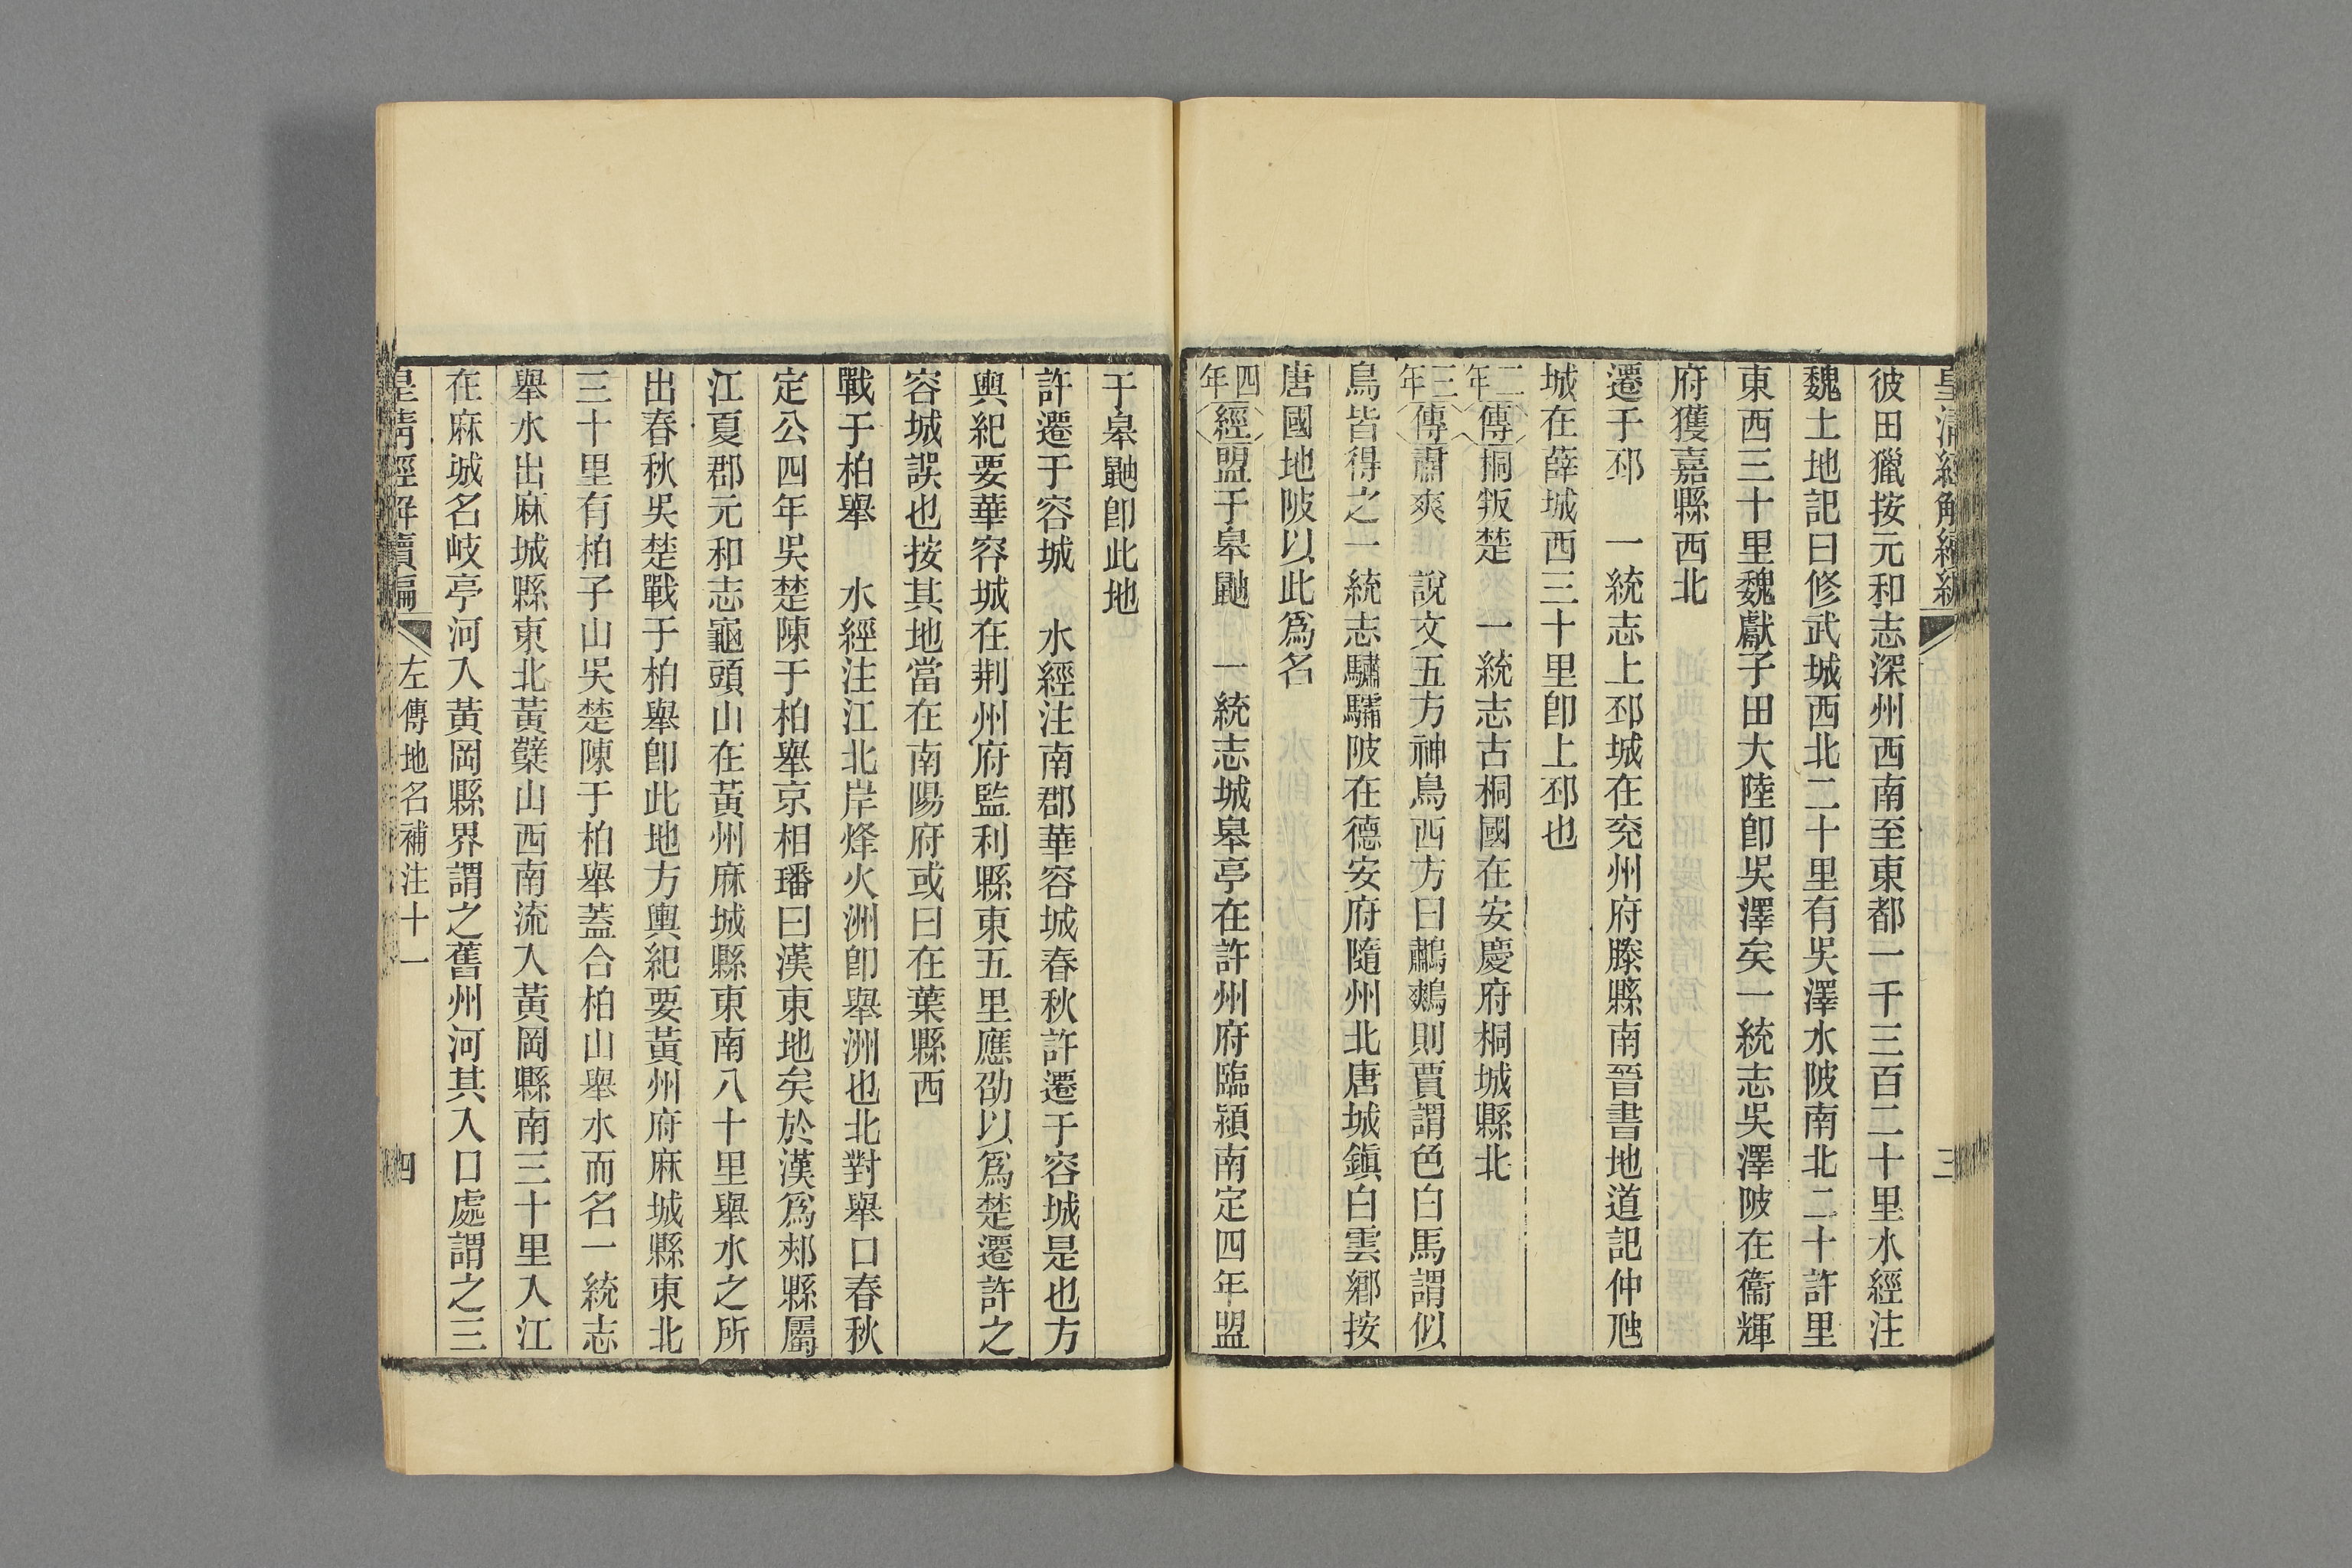 皇清經解續編
三
彼田獵按元和志深州西南至東都一千三百二十里水經注
魏土地記曰修武城西北二十里有吳澤水陂南北二十許里
東西三十里魏獻子田大陸卽吳澤矣一統志吳澤陂在衞輝
府獲嘉縣西北
遷于邳 一統志上邳城在兖州府滕縣南晉書地道記仲虺
城在薛城西三十里卽上邳也
二年傳桐叛楚 一統志古桐國在安慶府桐城縣北
三年傳肅爽 說文五方神鳥西方曰鷫鷞則賈謂色白馬謂似
鳥皆得之一統志驌驦陂在德安府隨州北唐城鎮白雲鄉按
唐國地陂以此爲名
四年經盟于皋鼬 一統志城皋亭在許州府臨潁南定四年盟
于皋鼬卽此地
許遷于容城 水經注南郡華容城春秋許遷于容城是也方
輿紀要華容城在荆州府監利縣東五里應劭以爲楚遷許之
容城誤也按其地當在南陽府或曰在葉縣西
戰于柏舉 水經注江北岸烽火洲卽舉洲也北對舉口春秋
定公四年吳楚陳于柏舉京相璠曰漢東地矣於漢爲邾縣屬
江夏郡元和志龜頭山在黃州麻城縣東南八十里舉水之所
出春秋吳楚戰于柏舉卽此地方輿紀要黃州府麻城縣東北
三十里有柏子山吳楚陳于柏舉蓋合柏山舉水而名一統志
舉水出麻城縣東北黃蘗山西南流入黃岡縣南三十里入江
在麻城名岐亭河入黃岡縣界謂之舊州河其入口處謂之三
皇清經解續編
左傳地名補注十一
四